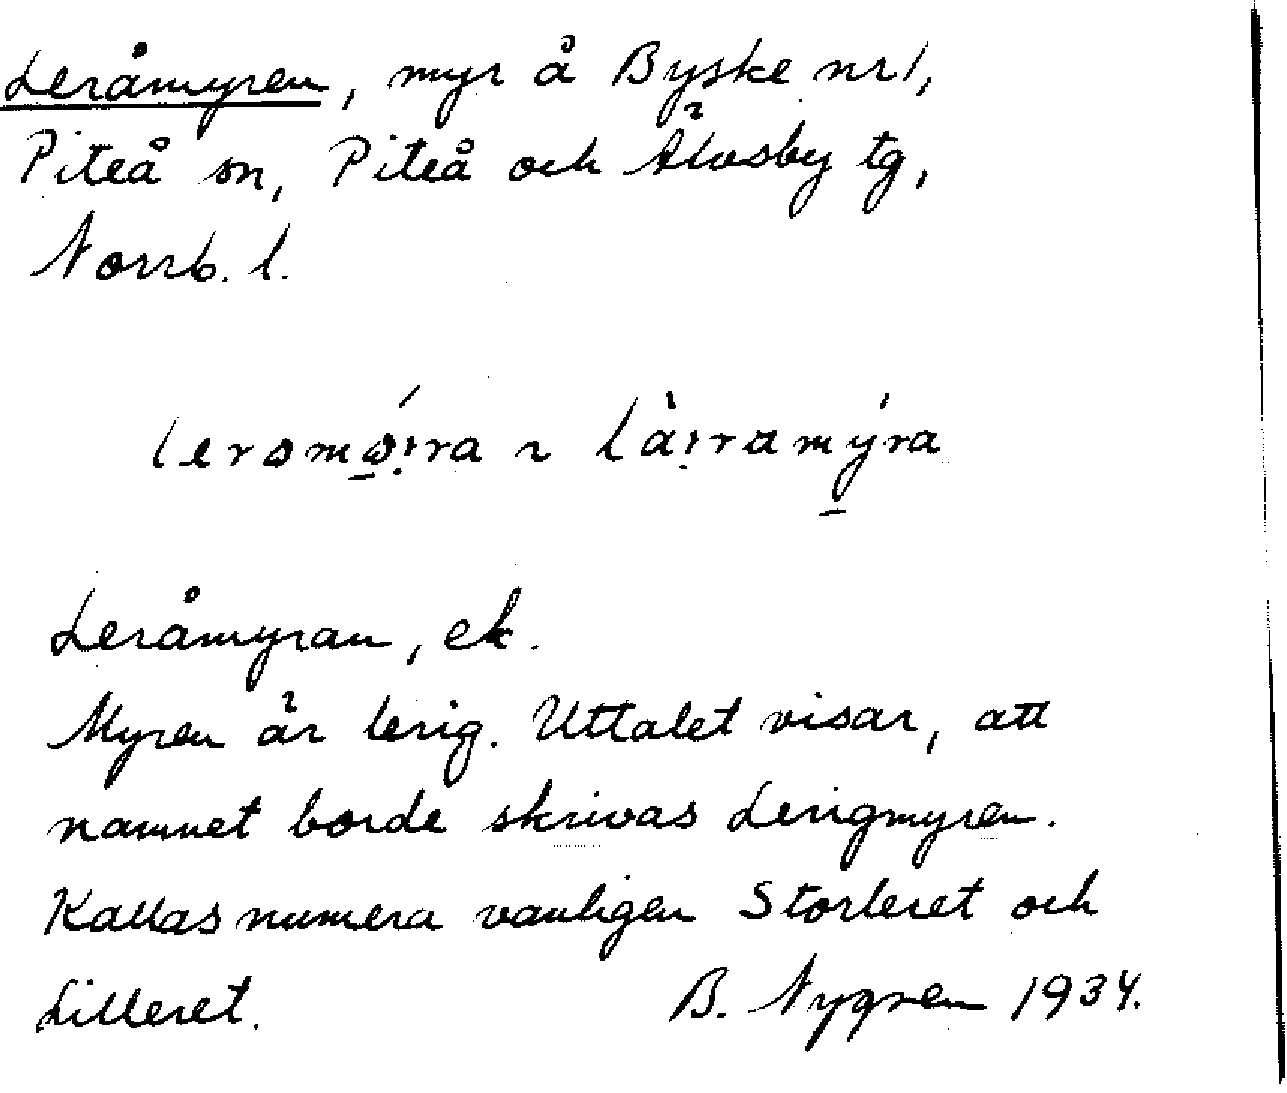 Leråmyren, myr å Byske nr 1,
Piteå sn, Piteå och Älvsby tg,
Norrb. l.
lerømǿ̱:ra ~ lä̀:ramý̱ra
Leråmyran, ek.
Myren är lerig. Uttalet visar, att
namnet borde skrivas Lerigmyren.
Kallas numera vanligen Storleret och
Lilleret.
B. Nygren 1934.